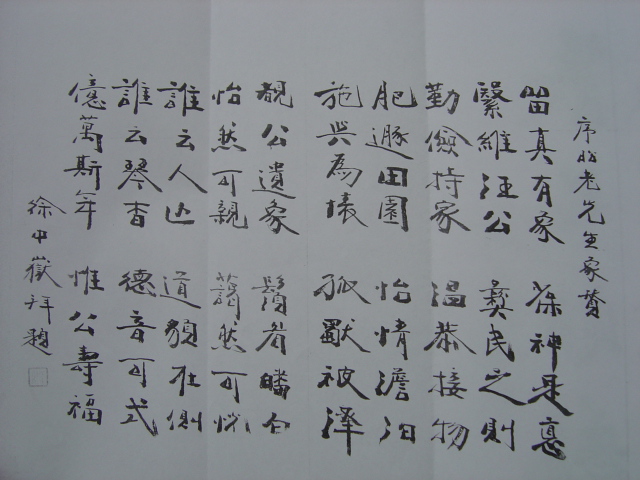 序老先生象贊
留真有象 神是
繄維汪公 彝民之則
勤儉持家 溫恭接物
肥遯田園 怡情澹泊
施與為懷 孤被澤
覩公遺象 鬚眉皤白
怡然可親 藹然可悅
誰云人亡 道貌在側
誰云琴杳 德音可式
億萬斯年 惟公壽福
徐中嶽拜題